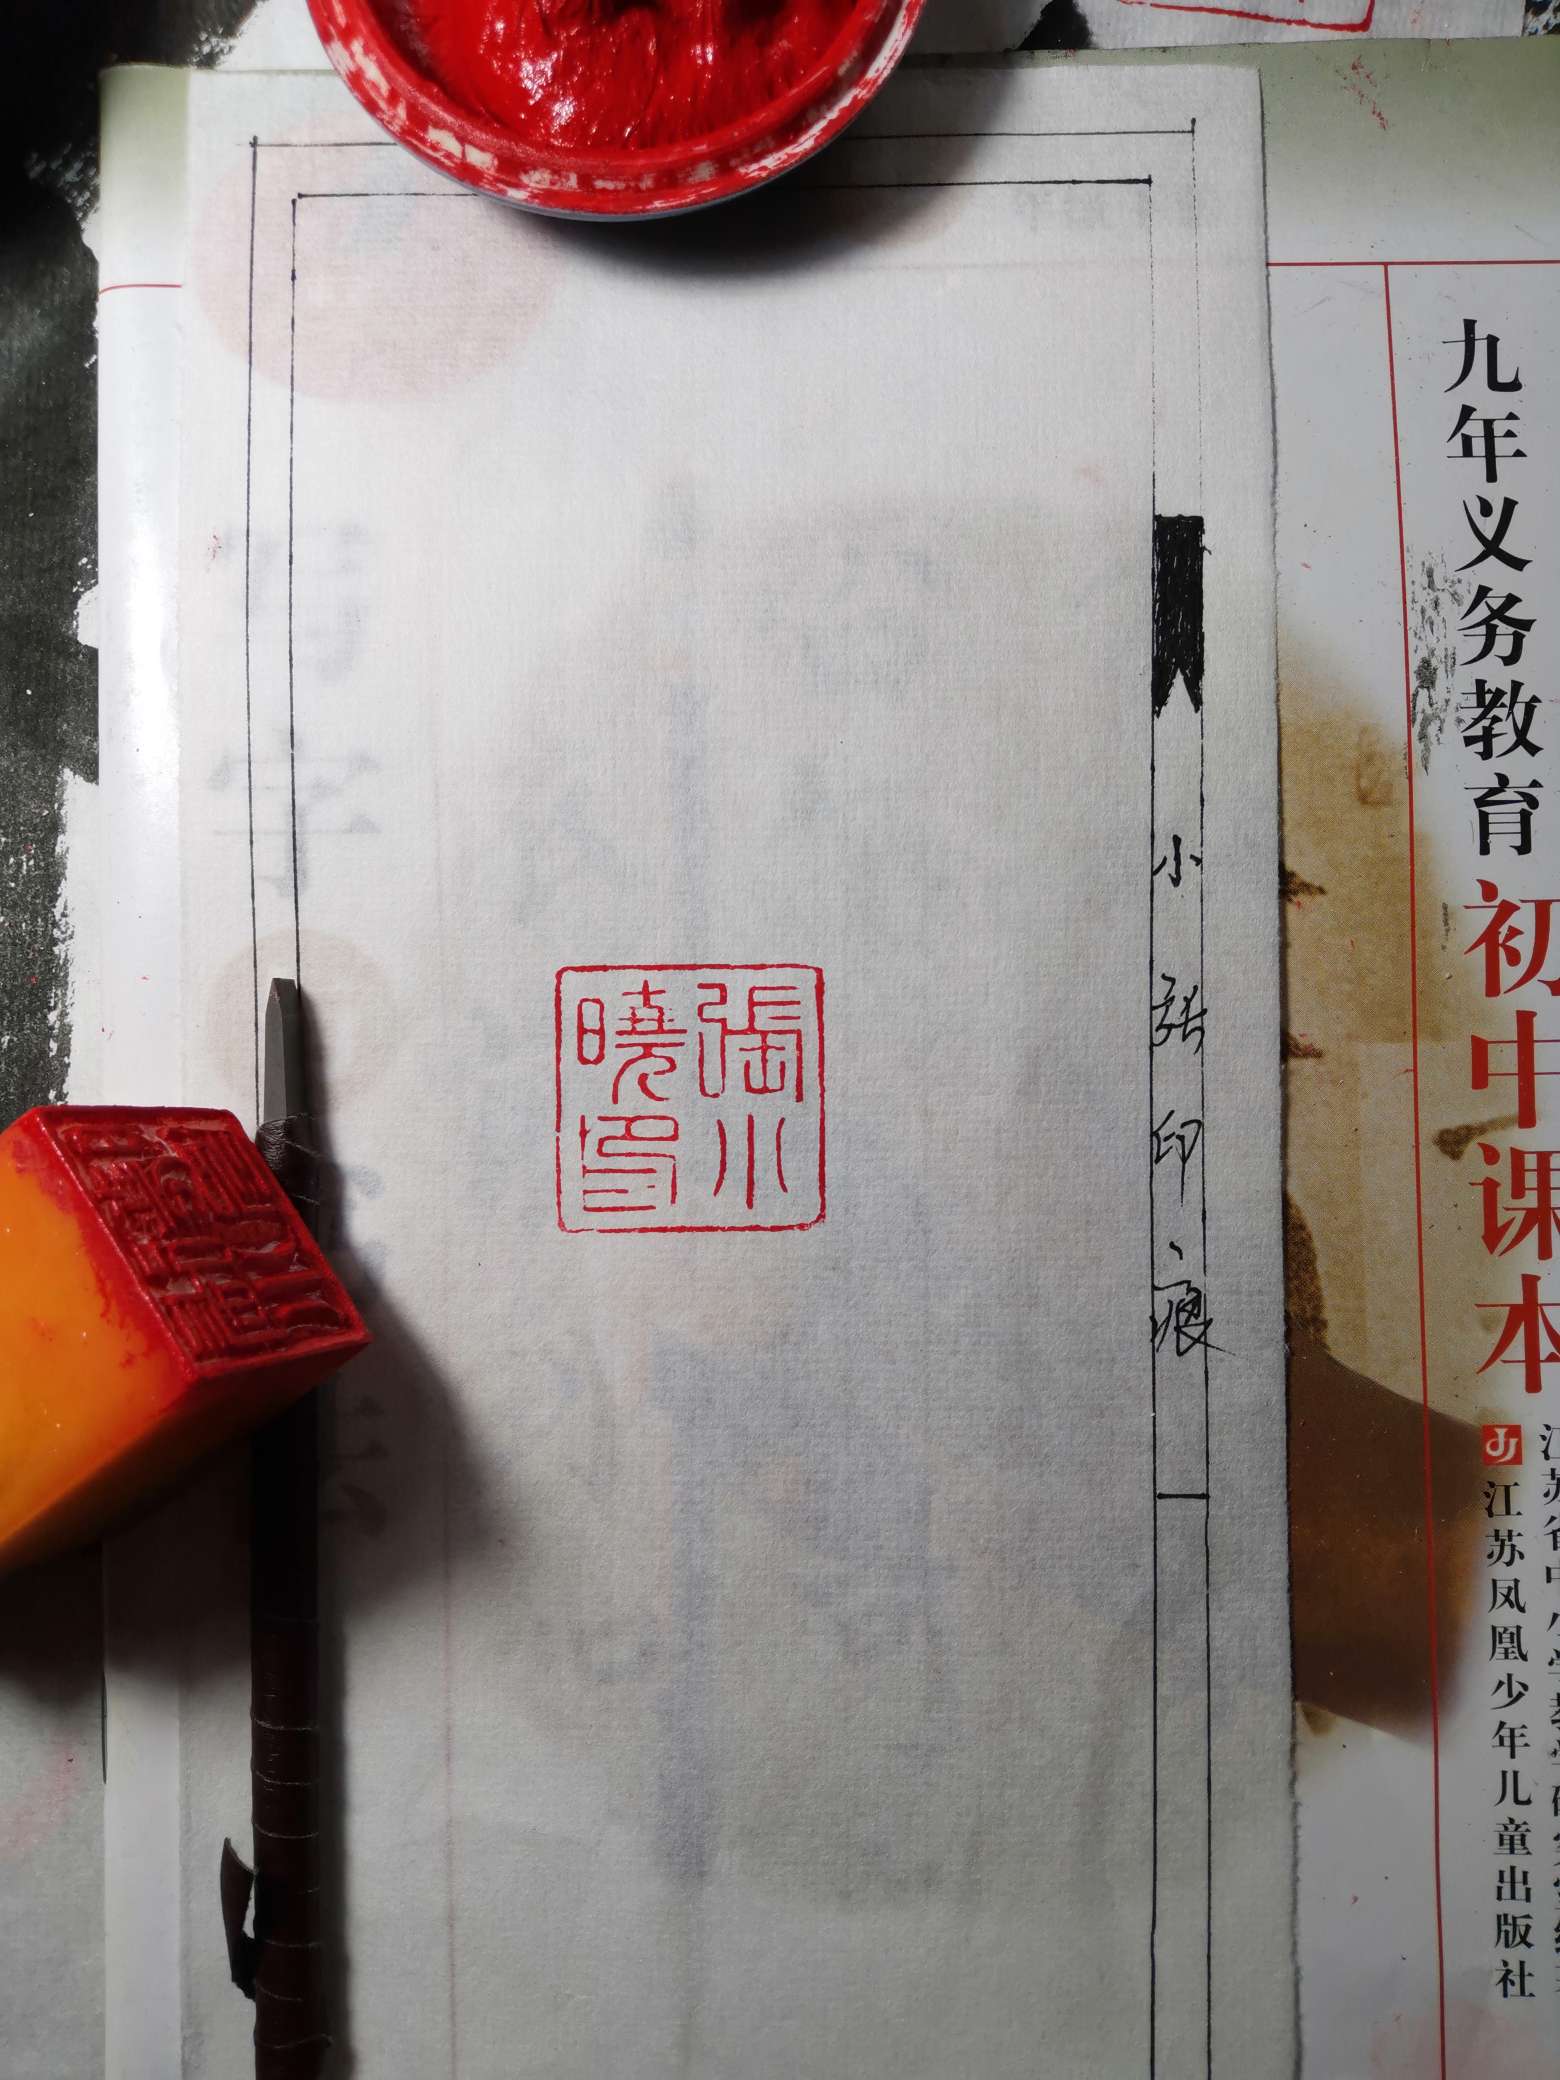 九年义务教育 初中课本
江苏凤凰少年儿童出版社
小张印痕
一
張小
曉印
写字